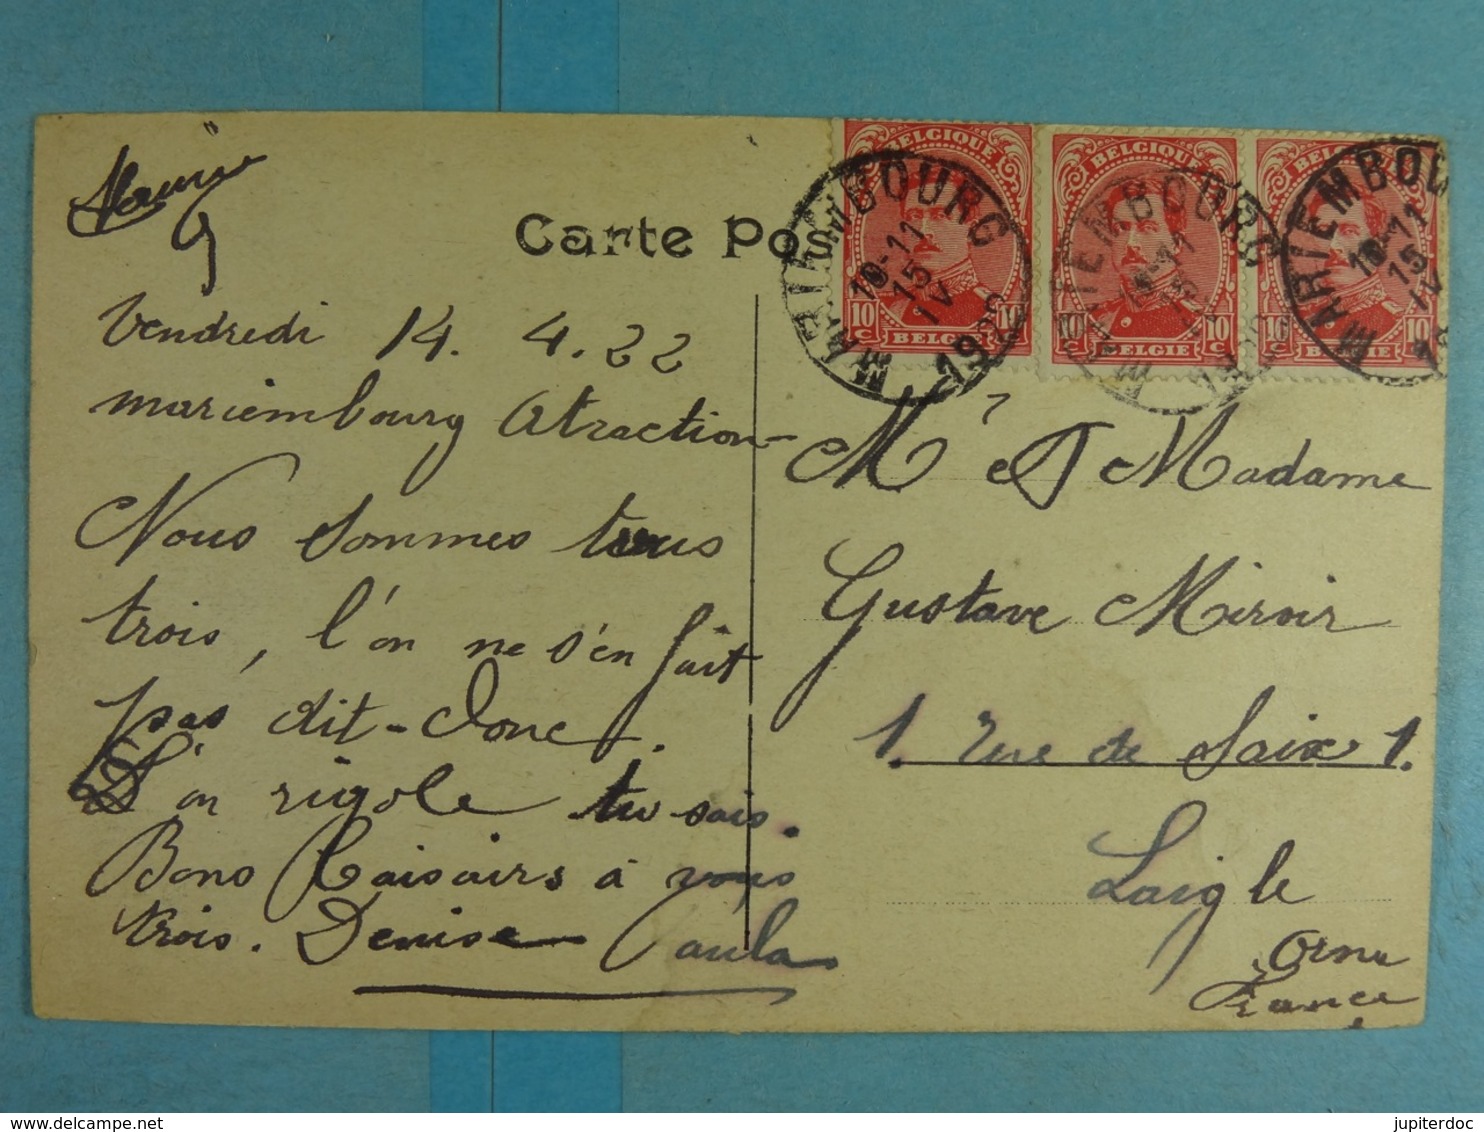 Carte Pos
Vendredi 14. 4. 22
mariembourg Atraction
Nous sommes tous
trois, l'on ne s'en fait
pas dit-donc.
L'on rigole tu sais.
Bons Baisers à vous
trois. Denise Paula
BELGIQUE
10 C 10 C
BELGIE
BELGIQUE
10 C 10 C
BELGIE
10 C 10 C
BELGIE
MARIEMBOURG
10-11
15
IV
1922
MARIEMBOURG
MARIEMBOU
10-11
15
IV
Mr et Madame
Gustave Miroir
1. rue de Saix 1.
Laigle
Orne
France
delcampe.net
jupiterdoc